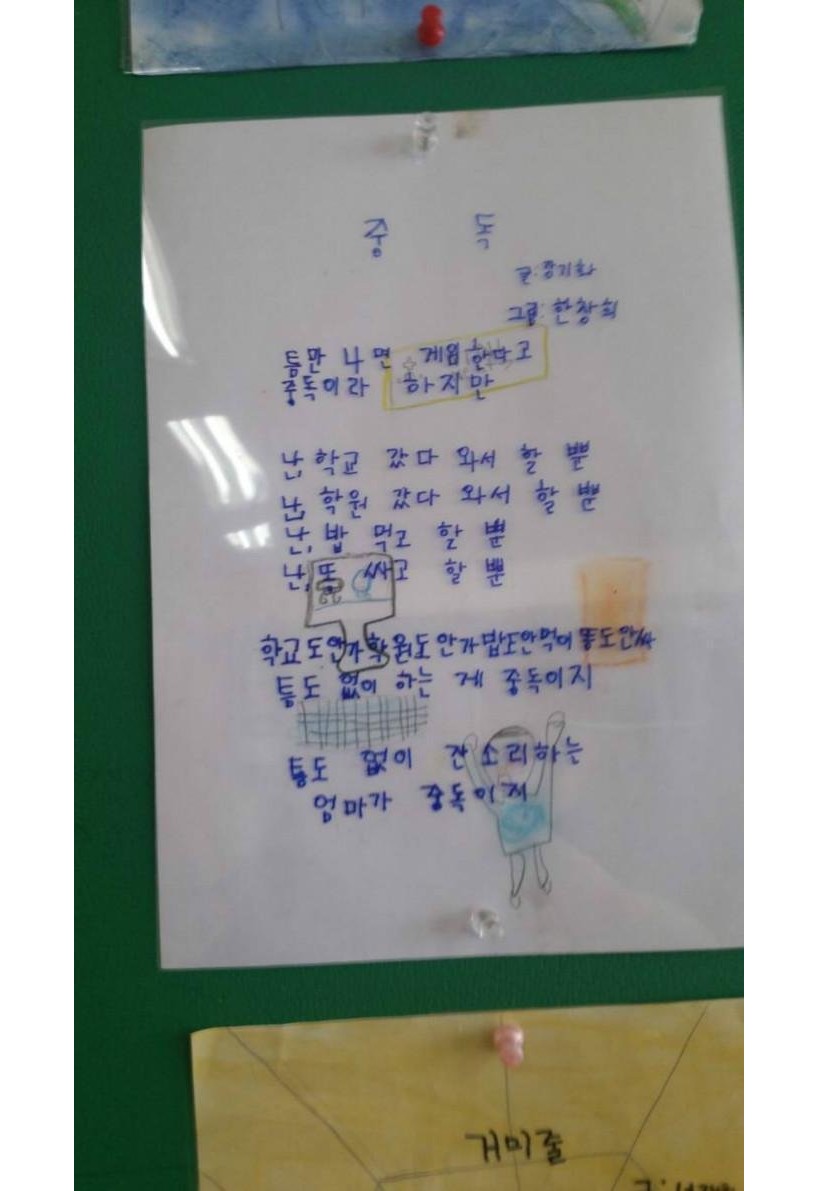 중 독
글:장지화
그림:한창희
틈만 나면 게임한다고
중독이라 하지만
난, 학교 갔다 와서 할 뿐
난, 학원 갔다 와서 할 뿐
난, 밥 먹고 할 뿐
난, 똥 싸고 할 뿐
학교도안가학원도안가밥도안먹어똥도안싸
틈도 없이 하는 게 중독이지
틈도 없이 잔소리하는
엄마가 중독이지
거미줄